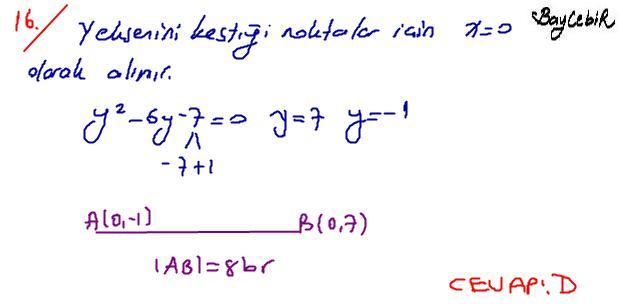 16. y eksenini kestiği noktalar için x=0
BayCebiR
olarak alınır.
y²-6y-7=0 y=7 y=-1
-7+1
A(0,-1) B(0,7)
|AB|=8br
CEVAP: D